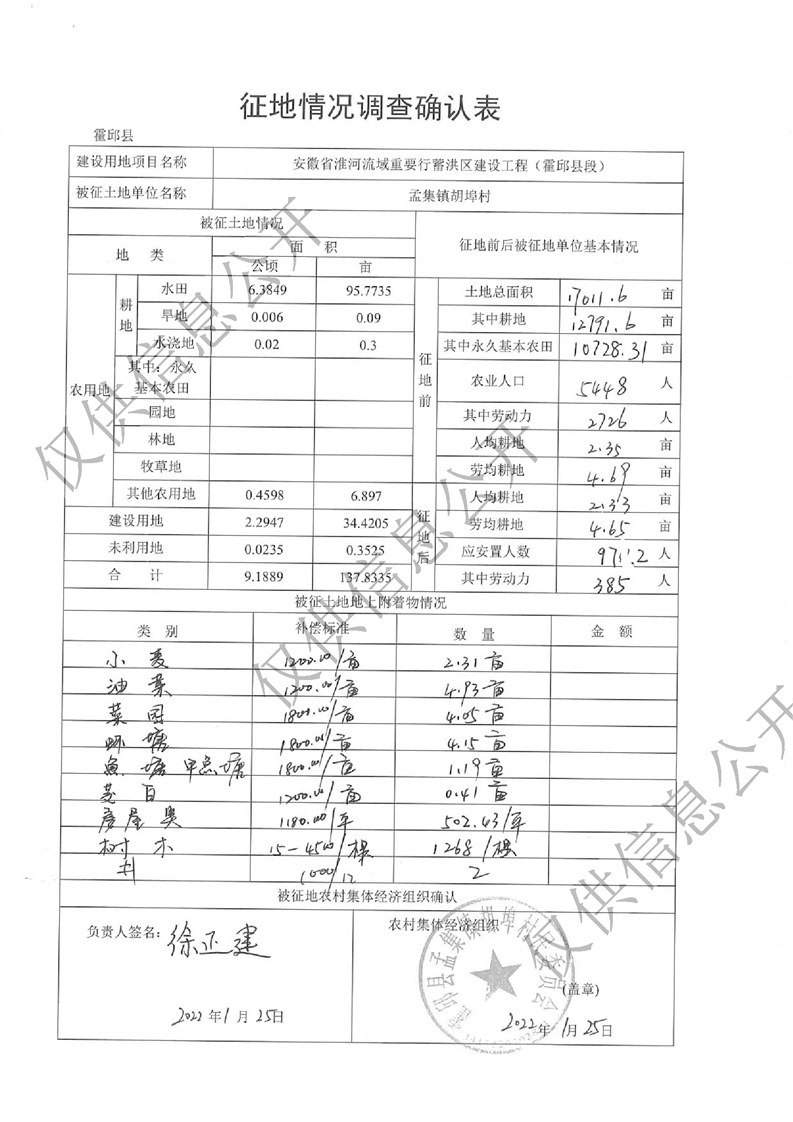 征地情况调查确认表
霍邱县
建设用地项目名称 安徽省淮河流域重要行蓄洪区建设工程（霍邱县段）
被征土地单位名称 孟集镇胡埠村
被征土地情况 征地前后被征地单位基本情况
地 类 面 积
公顷 亩
农用地 耕地 水田 6.3849 95.7735
旱地 0.006 0.09
水浇地 0.02 0.3
其中：永久基本农田
园地
林地
牧草地
其他农用地 0.4598 6.897
建设用地 2.2947 34.4205
未利用地 0.0235 0.3525
合 计 9.1889 137.8335
征地前 土地总面积 17011.6 亩
其中耕地 12791.6 亩
其中永久基本农田 10728.31 亩
农业人口 5448 人
其中劳动力 2726 人
人均耕地 2.35 亩
劳均耕地 4.69 亩
征地后 人均耕地 2.33 亩
劳均耕地 4.65 亩
应安置人数 人
其中劳动力 385 人
被征土地地上附着物情况
类 别 补偿标准 数 量 金 额
小麦 1200.00/亩 2.31亩
油菜 1200.00/亩 4.93亩
菜园 1800.00/亩 4.05亩
虾塘 1800.00/亩 4.15亩
鱼塘 甲鱼塘 1800.00/亩 1.19亩
茭白 1200.00/亩 0.41亩
房屋 1180.00/平 502.43/平
树木 15-4500/棵 1268/棵
井 1000/口 2
被征地农村集体经济组织确认
负责人签名：徐正建
2022年1月25日
农村集体经济组织
邱县孟集镇胡埠村民委员会
(盖章)
2022年1月25日
仅供信息公开
仅供信息公开
仅供信息公开